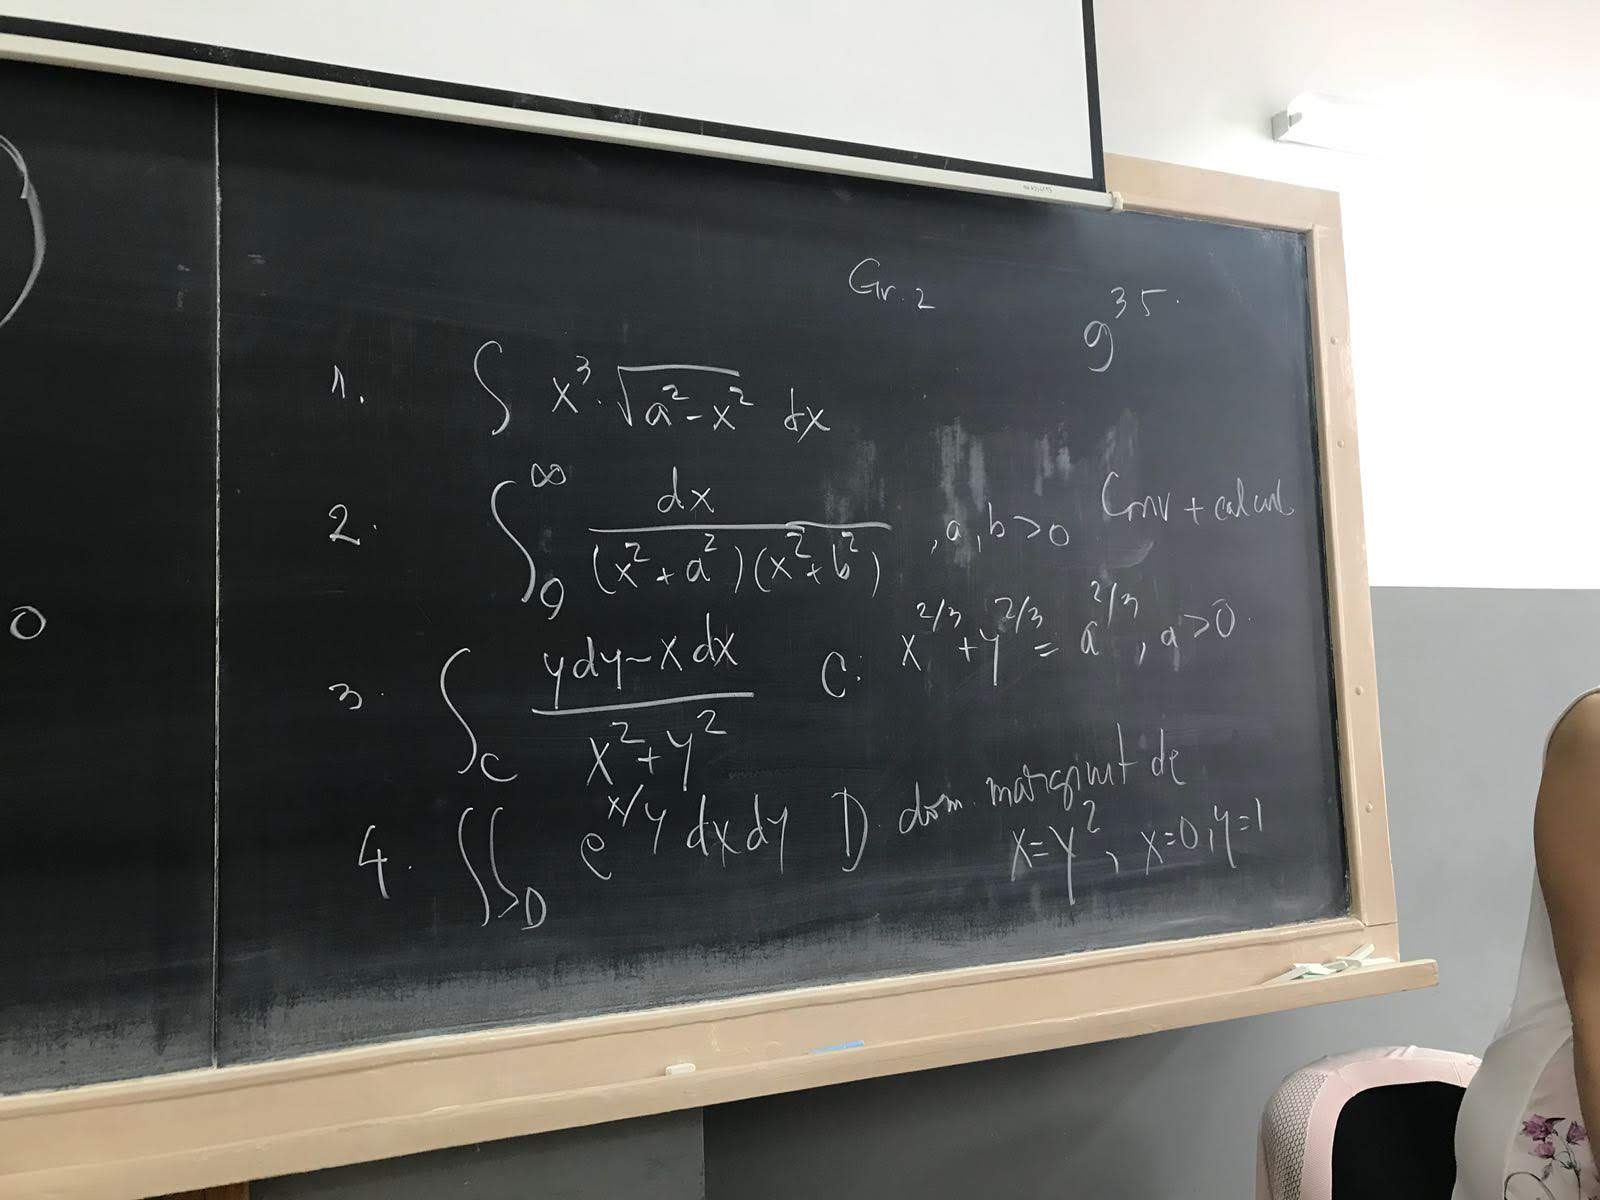 Gr. 2
9³⁵
1. ∫ x³·√(a²-x²) dx
2. ∫₀^∞ dx / ((x²+a²)(x²+b²)), a, b>0 Conv + calcul
3. ∫_C (ydy-xdx) / (x²+y²) C: x^(2/3)+y^(2/3) = a^(2/3), a>0
4. ∬_D e^(x/y) dxdy D dom. mărginit de
x=y², x=0, y=1
0